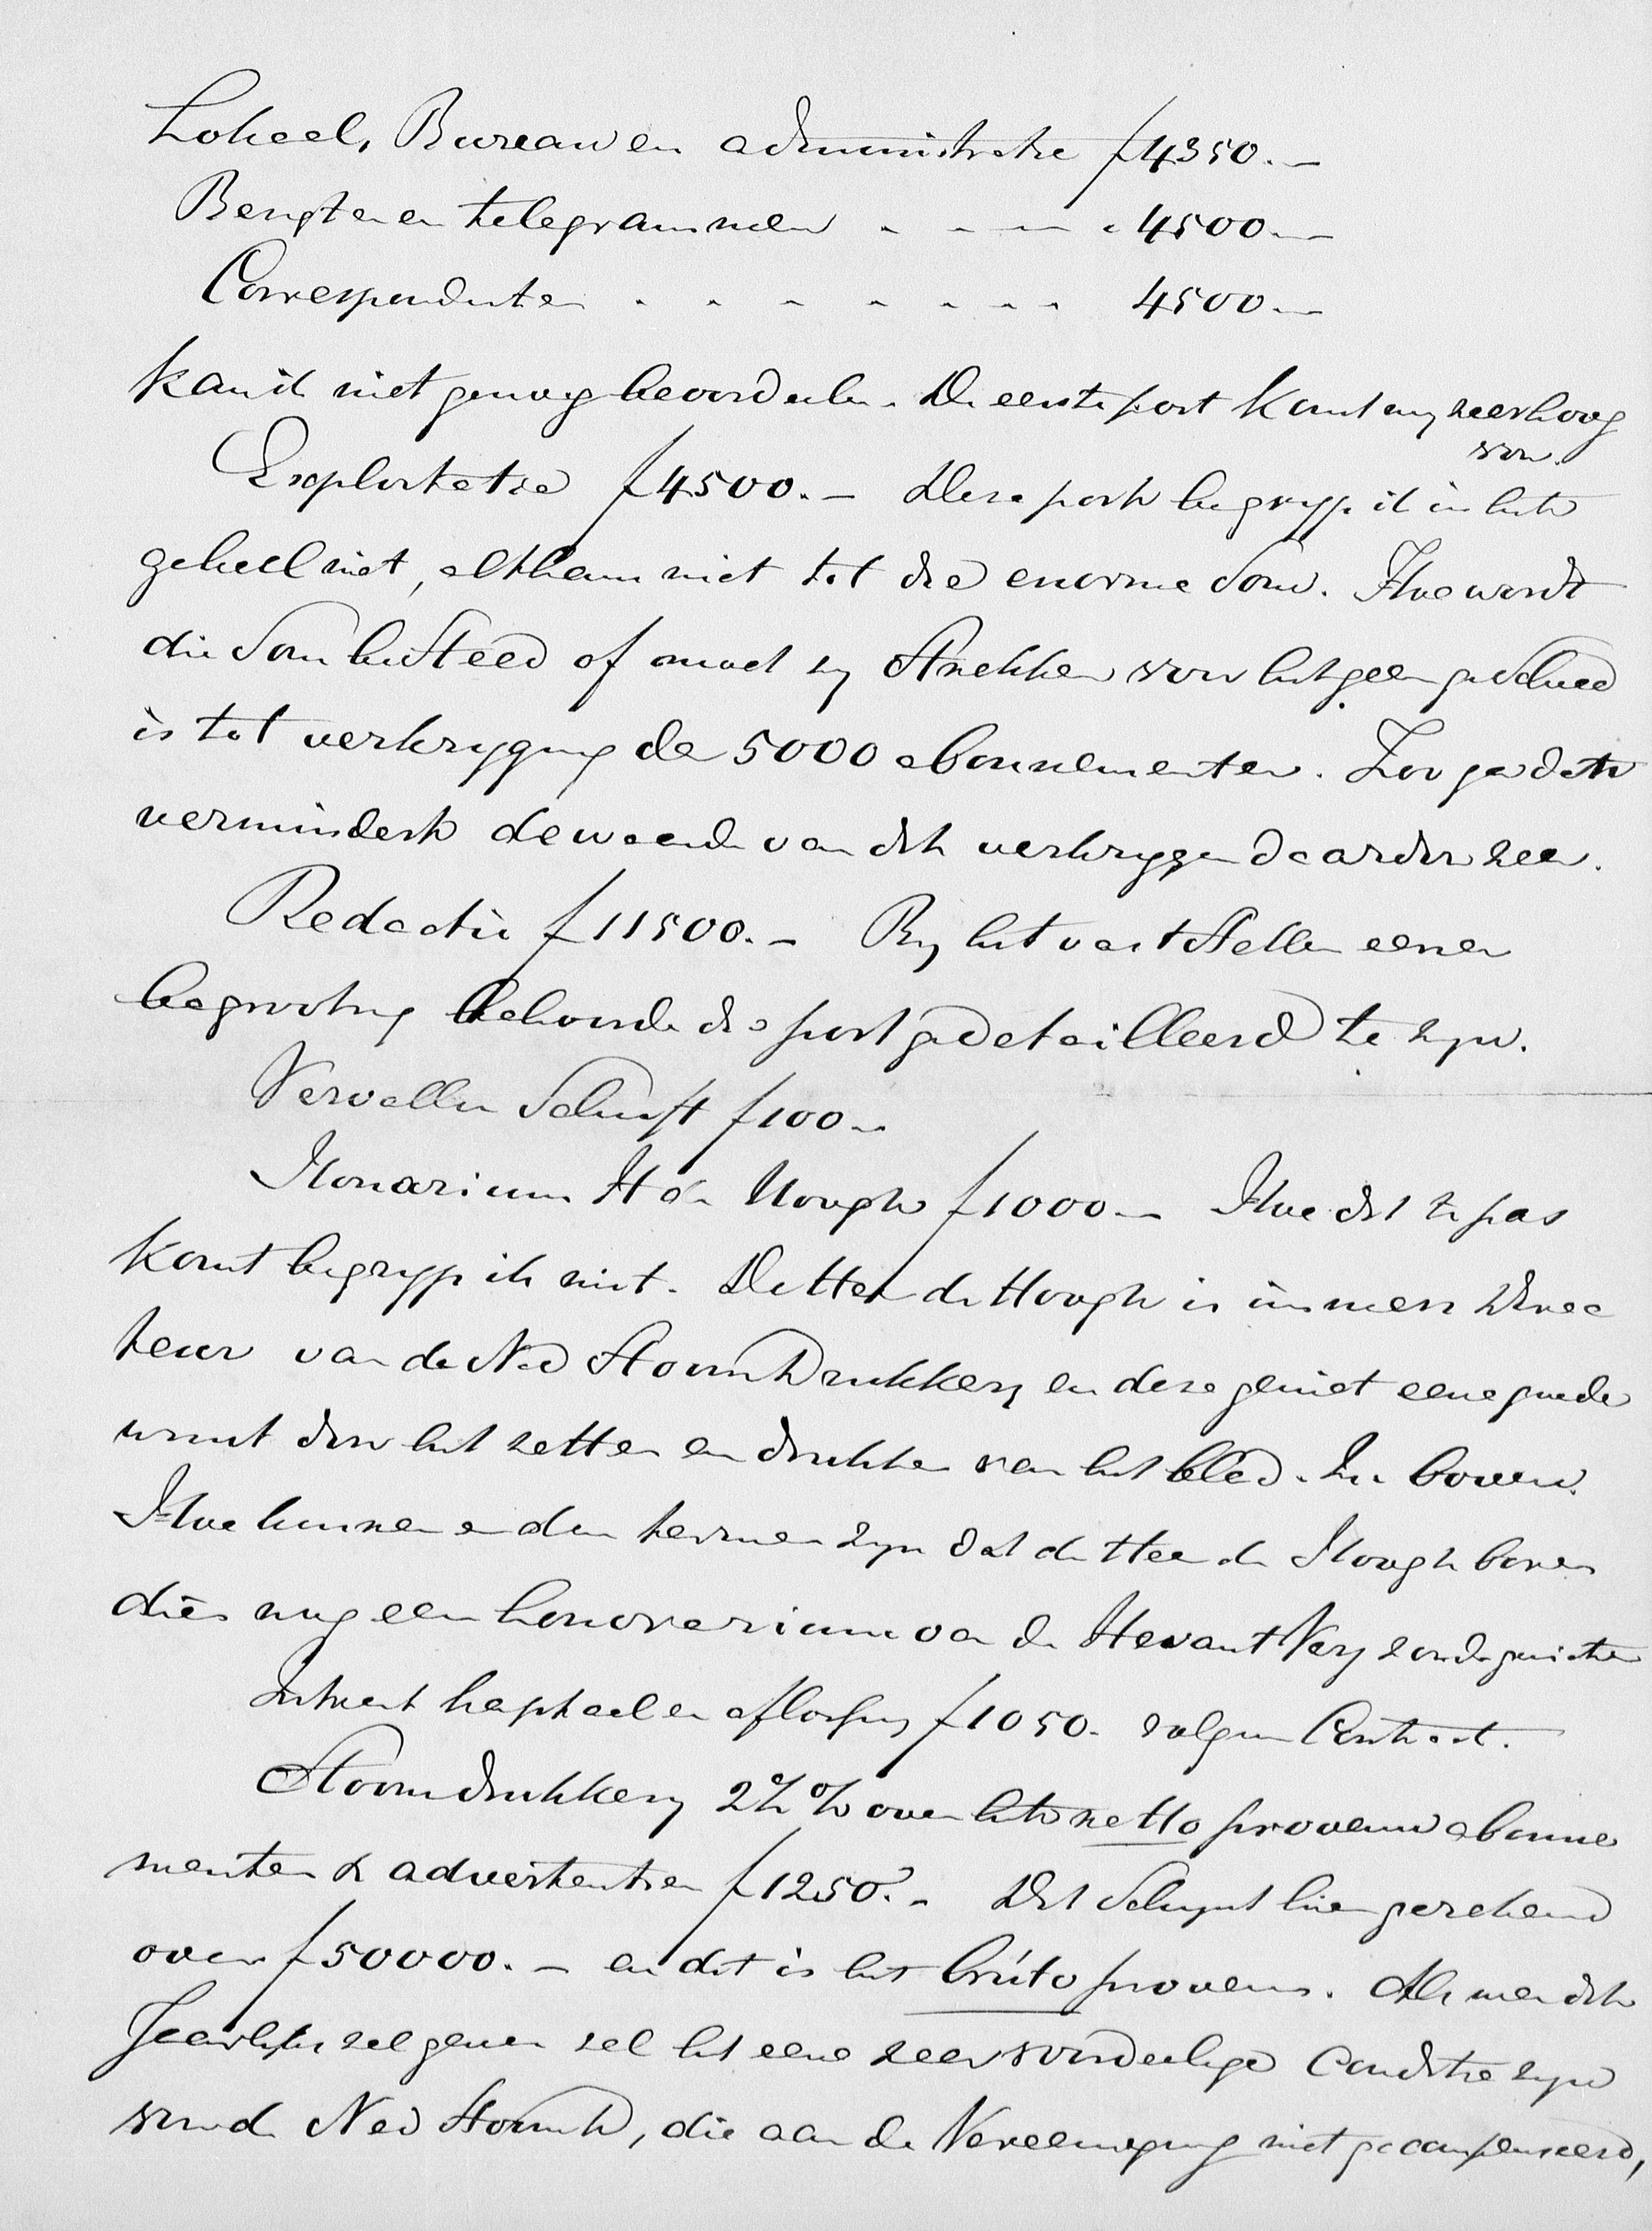 Lokaal, Bureau en administratie f 4350.—
Berigten en telegrammen . . . . " 4500.—
Correspondenten . . . . . . . . 4500.—
kan ik niet genoeg beoordeelen. De eerste post komt mij zeer hoog
voor.
Exploitatie f 4500.— Deze post begryp ik in het
geheel niet, althans niet tot die enorme som. Hoe wordt
die som besteed of moet zij strekken voor hetgeen geschied
is tot verkryging der 5000 abonnementen. Zoo ja dat
vermindert de waarde van dit verkrygen daarvan zeer.
Redactie f 11500.— By het vaststellen eener
begrooting behoorde die post gedetailleerd te zyn.
Vervallen Schrift f 100—
Honorarium H de Hoogh f 1000— Hoe dit te pas
komt begryp ik niet. De Heer de Hoogh is immers Direc
teur van de Ned Stoomdrukkery en deze geniet eene goede
winst door het zetten en drukken van het blad. Zie boven.
Hoe kunnen er dan termen zyn dat de Heer de Hoogh boven
dien nog een honorarium van de Very zoude genieten
Interest kapitaal en aflossing f 1050. volgens Contract.
Stoomdrukkery 2½ % over het netto provenu abonne
menten & advertentien f 1250.— Dit schynt hier gerekend
over f 50000.— en dit is het bruto provenu. Als men dit
Jaarlyks zal geven zal het eene zeer voordeelige Conditie zyn
voor de Ned Stoomd, die aan de Vereeniging niet gecompenseerd,